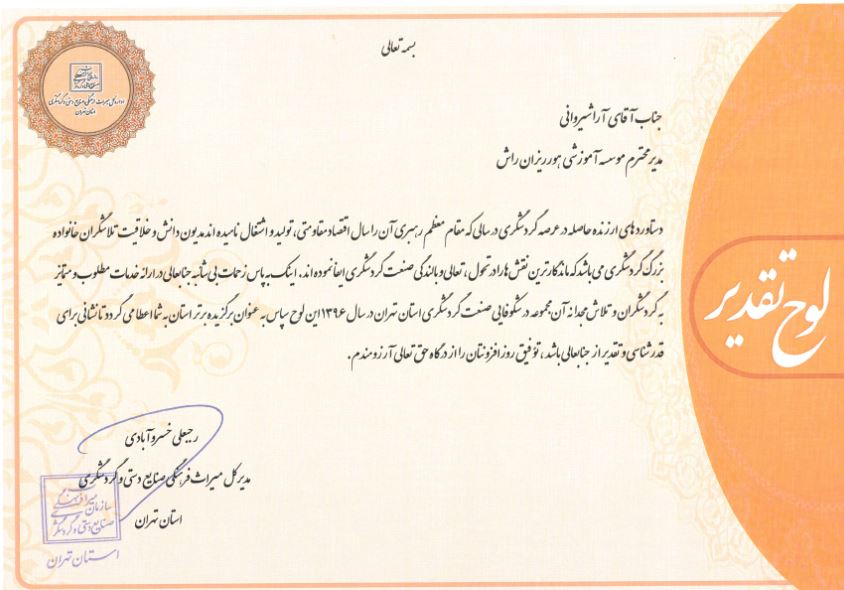 بسمه تعالی
جناب آقای آراشیروانی
مدیر محترم موسسه آموزشی هورریزان راش
دستاوردهای ارزنده حاصله در عرصه گردشگری در سالی که مقام معظم رهبری آن را سال اقتصاد مقاومتی، تولید و اشتغال نامیده اند مدیون دانش و خلاقیت تلاشگران خانواده
بزرگ گردشگری می باشد که ماندگارترین نقش ها را در تحول، تعالی و بالندگی صنعت گردشگری ایفا نموده اند. اینک به پاس زحمات بی شائبه جنابعالی در ارائه خدمات مطلوب و متمایز
به گردشگران و تلاش مجدانه آن مجموعه در شکوفایی صنعت گردشگری استان تهران در سال ۱۳۹۶ این لوح سپاس به عنوان برگزیده برتر استان به شما اعطا می گردد تا نشانی برای
قدرشناسی و تقدیر از جنابعالی باشد، توفیق روزافزونتان را از درگاه حق تعالی آرزومندم.
لوح تقدیر
رجبعلی خسروآبادی
مدیرکل میراث فرهنگی، صنایع دستی و گردشگری
استان تهران
سازمان میراث فرهنگی
صنایع دستی و گردشگری
استان تهران
اداره کل میراث فرهنگی، صنایع دستی و گردشگری
استان تهران